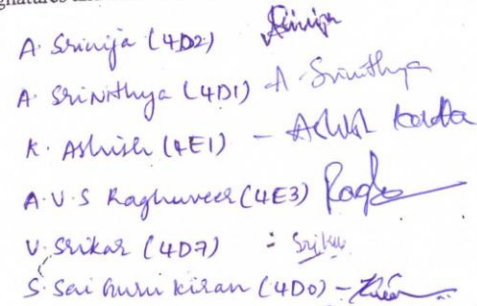 A. Srinija (4D2) Srinija
A. Srinithya (4D1) A Srinithya
K. Ashish (4E1) - Ashish
A.V.S Raghuveer (4E3) Raghu
V. Srikar (4D7) : Srikar
S. Sai Guru Kiran (4D0) -